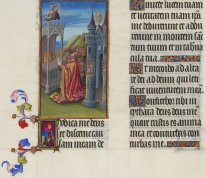 Iudica me deus
et discerne cau
sam meam de
mitte lucem tuam
et veritatem tuam ipsa
me deduxerunt et ad
duxerunt in montem sanc
tum tuum et in taberna
cula tua
Et introibo ad alta
re dei ad deum qui letifi
cat iuventutem meam
Confitebor tibi in
cythara deus deus me
us quare tristis es anima
mea et quare con
turbas me